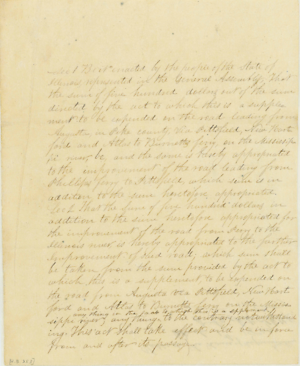 Sec 1 Be it enacted by the people of the State of
Illinois represented in the General Assembly, That
the sum of five hundred dollars out of the sum
directed by the act to which this is a supple
ment to be expended on the road leading from
Augusta in Pike county, via Pittsfield, New Hart
ford and Atlas to Burnetts ferry on the Mississip
pi river, be and the same is hereby appropriated
to the improvement of the road leading from
Phillips ferry to Pittsfield, which sum is in
addition to the sum heretofore appropriated
Sec 2 That the sum of five hundred dollars in
addition to the sum heretofore appropriated for
the improvement of the road from to the
Illinois river, is hereby appropriated to the further
improvement of said road, which sum shall
be taken from the sum provided by the act to
which this is a supplement to be expended on
the road from Augusta via Pittsfield, New Hart
ford and Atlas to ferry on the Missis
any thing in the act to which this is a supplement
sippi river, any law to the contrary notwithstand
ing. This act shall take effect and be in force
from and after its passage